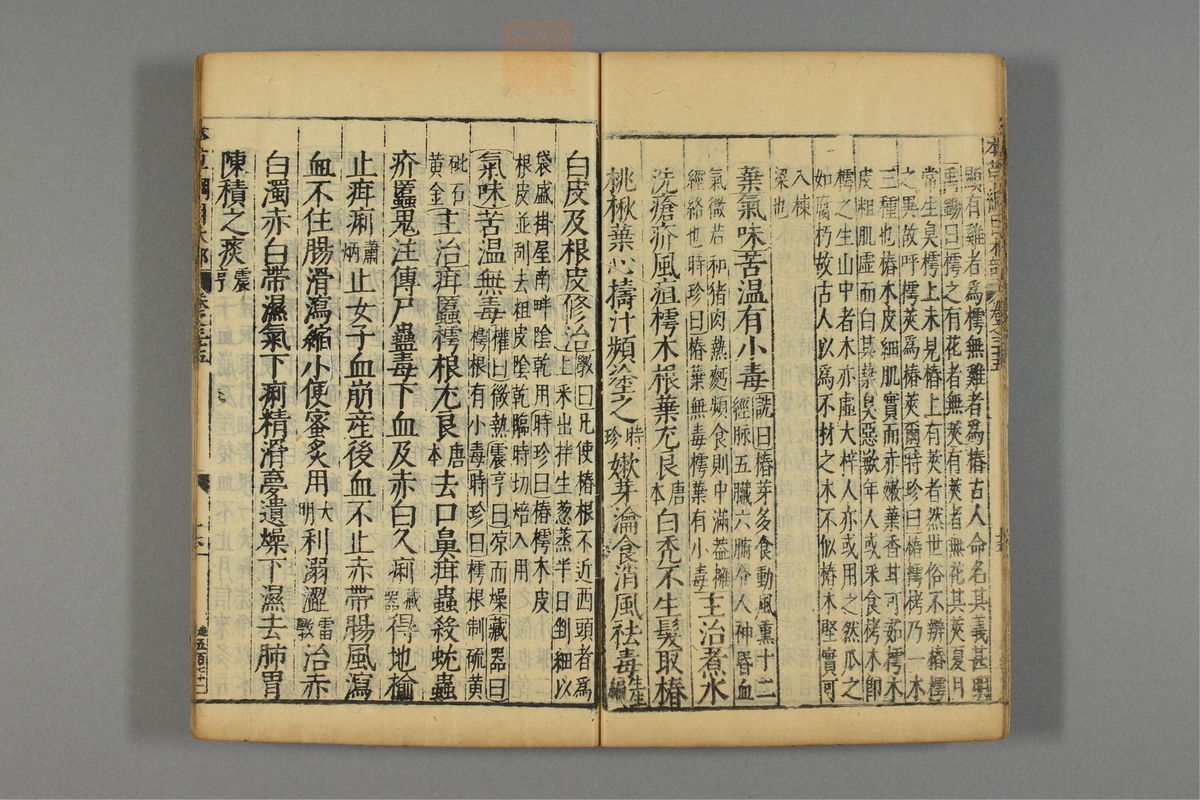 本草綱目木部 卷之三十五
顯有雞者爲樗無雞者爲椿古人命名其義甚明
禹錫曰樗之有花者無莢有莢者無花其莢夏月
常生臭樗上未見椿上有莢者然世俗不辨椿樗
之異故呼樗莢爲椿莢爾時珍曰椿樗栲乃一木
三種也椿木皮細肌實而赤嫩葉香甘可茹樗木
皮粗肌虛而白其葉臭惡歉年人或采食栲木即
樗之生山中者木亦虛大梓人亦或用之然爪之
如腐朽故古人以爲不材之木不似椿木堅實可
入棟
梁也
葉氣味苦温有小毒詵曰椿芽多食動風熏十二
經脉五臟六腑令人神昏血
氣微若和猪肉熱麪頻食則中滿蓋擁
經絡也時珍曰椿葉無毒樗葉有小毒主治煮水
洗瘡疥風疽樗木根葉尤良唐本白禿不生髮取椿
桃楸葉心擣汁頻塗之時珍嫩芽瀹食消風祛毒生生編
白皮及根皮修治斆曰凡使椿根不近西頭者爲
上采出拌生葱蒸半日剉細以
袋盛掛屋南畔陰乾用時珍曰椿樗木皮
根皮並刮去粗皮陰乾臨時切焙入用
氣味苦温無毒權曰微熱震亨曰凉而燥藏器曰
樗根有小毒時珍曰樗根制硫黄
砒石
黄金主治疳䘌樗根尤良唐本去口鼻疳蟲殺蚘蟲
疥䘌鬼注傳尸蠱毒下血及赤白久痢藏器得地榆
止疳痢蕭炳止女子血崩産後血不止赤帶腸風瀉
血不住腸滑瀉縮小便蜜炙用大明利溺澀雷斆治赤
白濁赤白帶濕氣下痢精滑夢遺燥下濕去肺胃
陳積之痰震亨
本草綱目木部 卷之三十五